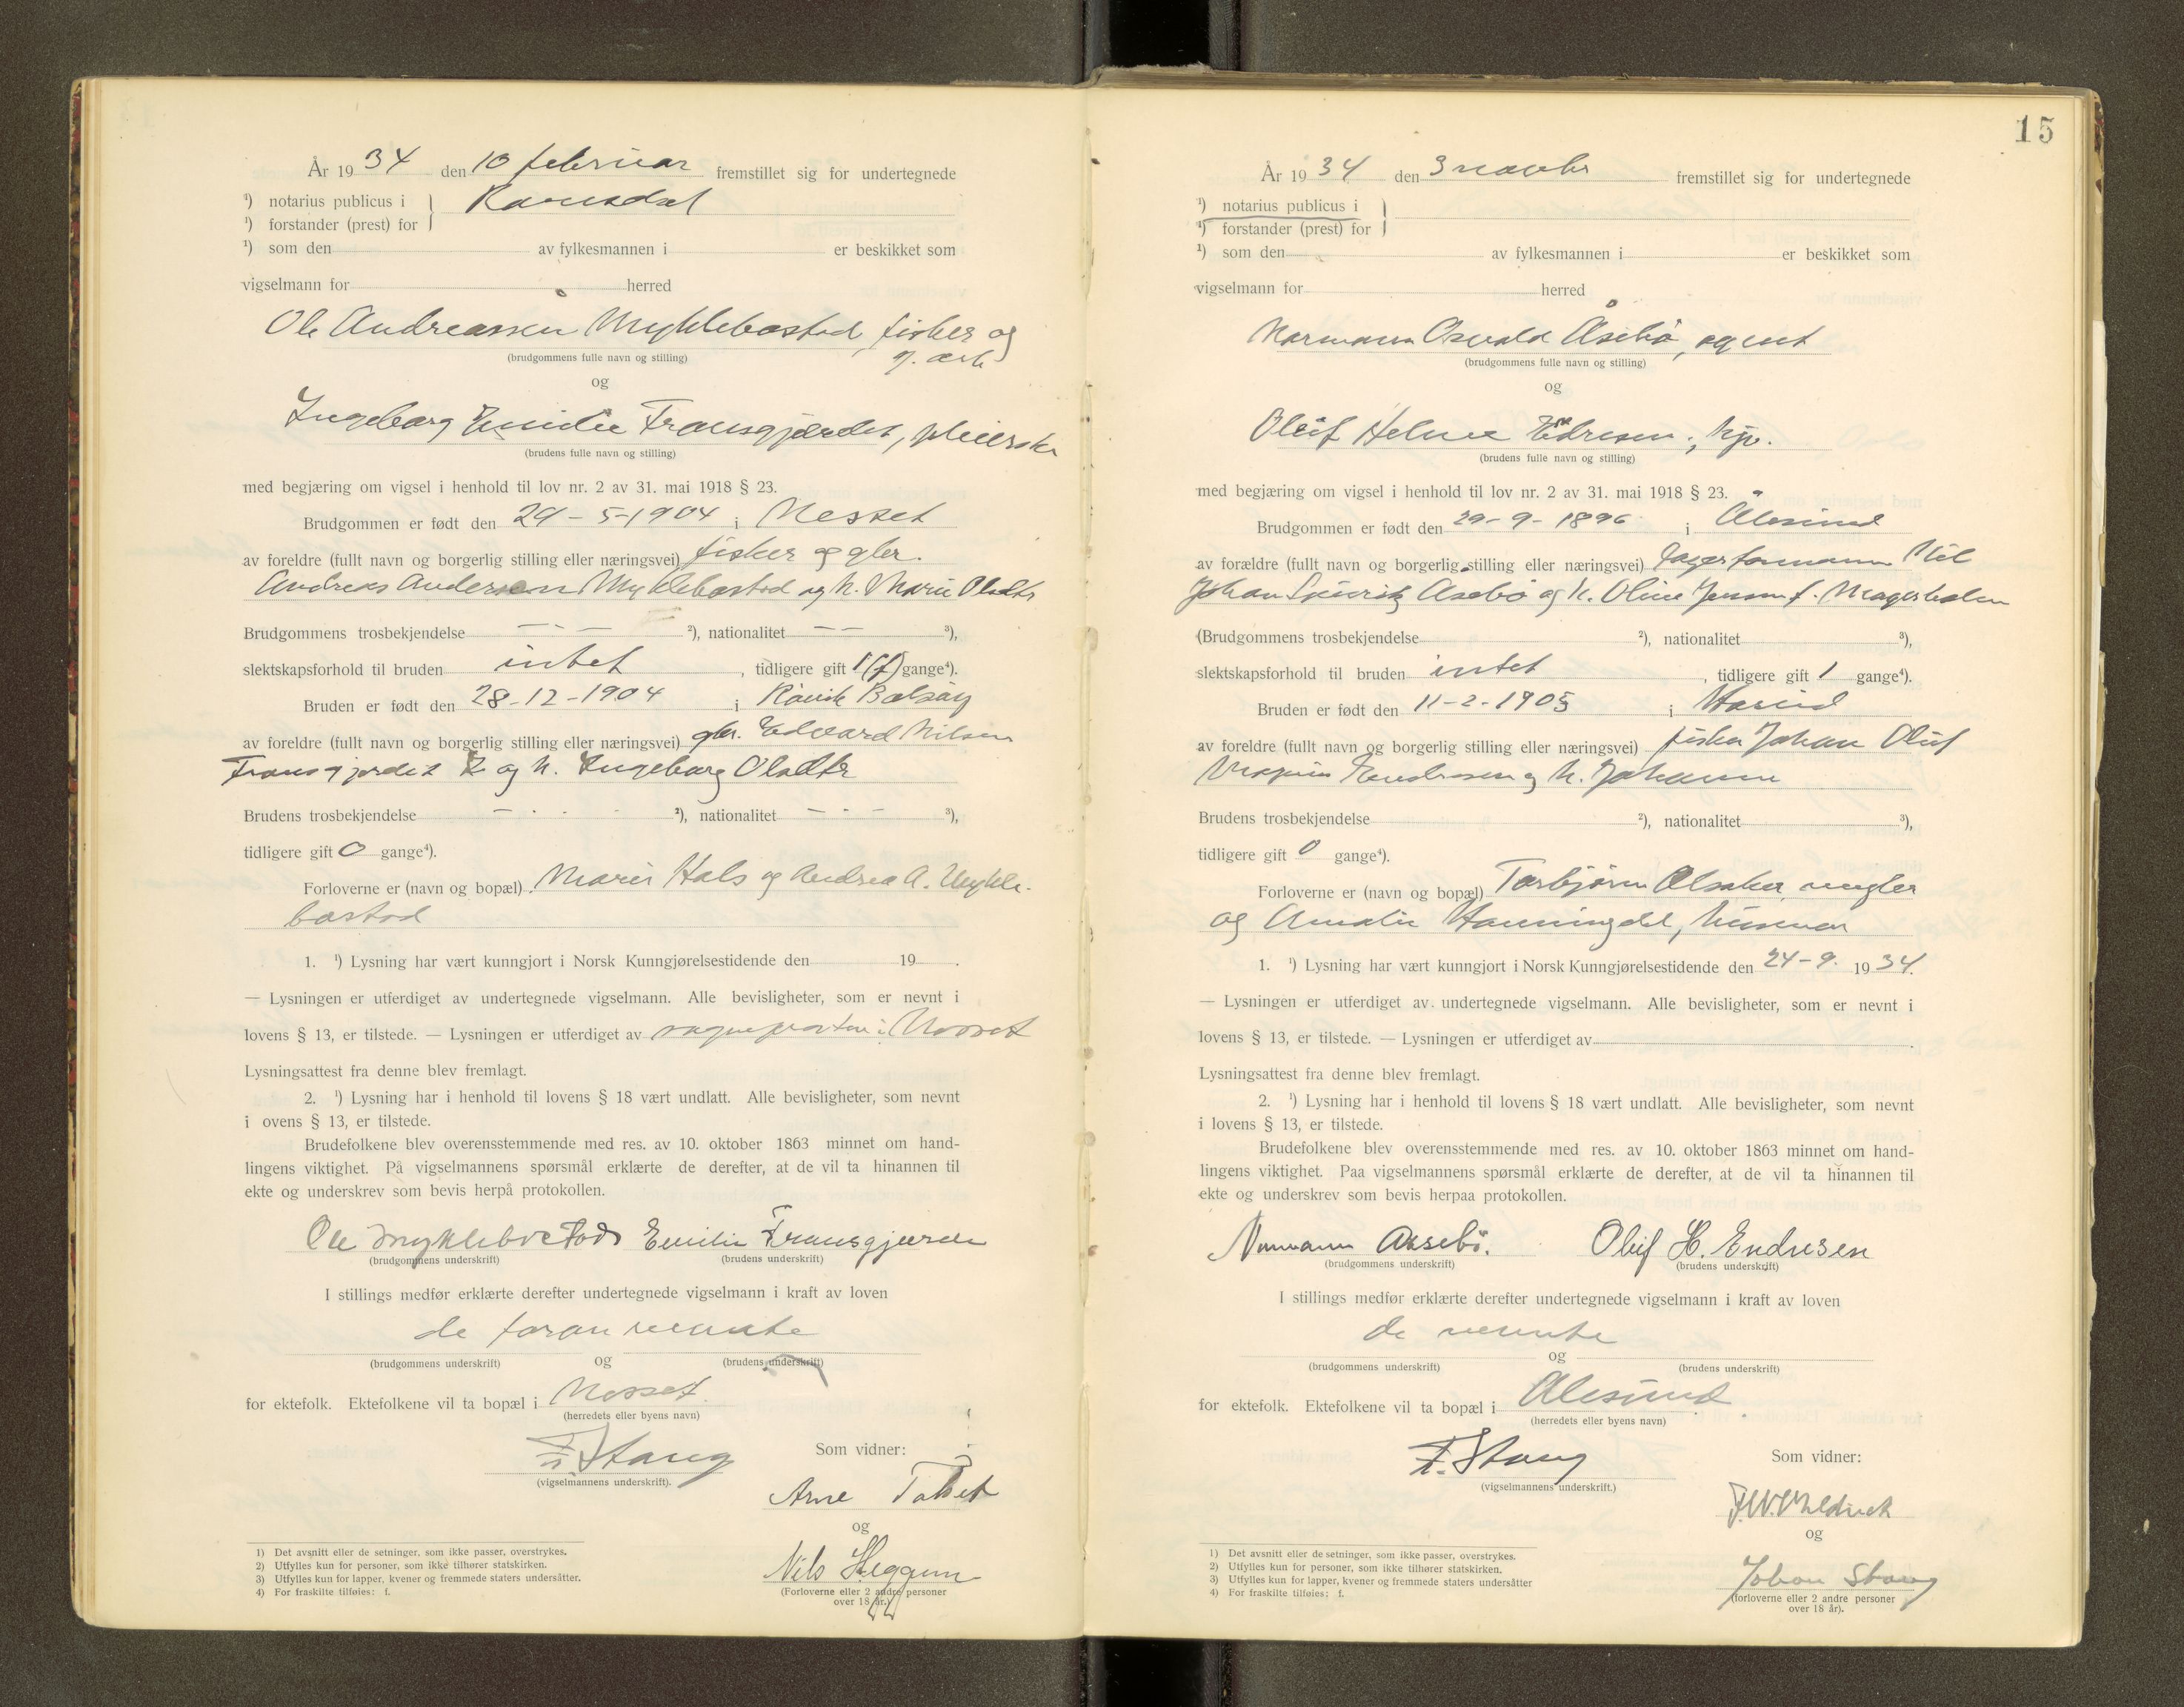 År 19 34 den 10 februar fremstillet sig for undertegnede
¹) notarius publicus i } Romsdal
¹) forstander (prest) for
¹) som den av fylkesmannen i er beskikket som
vigselmann for herred
Ole Andreassen Myklebostad, fisker og
g. arb
(brudgommens fulle navn og stilling)
og
Ingeborg Emilie Fransgjerdet, pleierske
(brudens fulle navn og stilling)
med begjæring om vigsel i henhold til lov nr. 2 av 31. mai 1918 § 23.
Brudgommen er født den 29-5-1904 i Nesset
av foreldre (fullt navn og borgerlig stilling eller næringsvei) fisker og gbr.
Andreas Andersen Myklebostad og h. Marie Olsdtr
Brudgommens trosbekjendelse — - — ²), nationalitet — — ³),
slektskapsforhold til bruden intet , tidligere gift 1 (f) gange⁴).
Bruden er født den 28-12-1904 i Røvik Bolsøy
av foreldre (fullt navn og borgerlig stilling eller næringsvei) gbr. Edvard Nilsen
Fransgjerdet og h. Ingeborg Olsdtr
Brudens trosbekjendelse — - - ²), nationalitet — - — ³),
tidligere gift 0 gange⁴).
Forloverne er (navn og bopæl) Marie Hals og Andrea A. Mykle-
bostad
1. ¹) Lysning har vært kunngjort i Norsk Kunngjørelsestidende den 19 .
— Lysningen er utferdiget av undertegnede vigselmann. Alle bevisligheter, som er nevnt i
lovens § 13, er tilstede. — Lysningen er utferdiget av sognepresten i Nesset
Lysningsattest fra denne blev fremlagt.
2. ¹) Lysning har i henhold til lovens § 18 vært undlatt. Alle bevisligheter, som nevnt
i ovens § 13, er tilstede.
Brudefolkene blev overensstemmende med res. av 10. oktober 1863 minnet om hand-
lingens viktighet. På vigselmannens spørsmål erklærte de derefter, at de vil ta hinannen til
ekte og underskrev som bevis herpå protokollen.
Ole Myklebostad Emilie Fransgjerde
(brudgommens underskrift) (brudens underskrift)
I stillings medfør erklærte derefter undertegnede vigselmann i kraft av loven
de foran nevnte
og
(brudgommens underskrift) (brudens underskrift)
for ektefolk. Ektefolkene vil ta bopæl i Nesset
(herredets eller byens navn)
F. Stang
(vigselmannens underskrift).
Som vidner:
Arne
og
Nils Heggem
(Forloverne eller 2 andre personer
over 18 år.)
1) Det avsnitt eller de setninger, som ikke passer, overstrykes.
2) Utfylles kun for personer, som ikke tilhører statskirken.
3) Utfylles kun for lapper, kvener og fremmede staters undersåtter.
4) For fraskilte tilføies: f.
15
År 19 34 den 3 novbr fremstillet sig for undertegnede
¹) notarius publicus i }
¹) forstander (prest) for
¹) som den av fylkesmannen i er beskikket som
vigselmann for herred
Normann Osvald Åsebø, agent
(brudgommens fulle navn og stilling)
og
Oluf Helene Edresen, hjv.
(brudens fulle navn og stilling)
med begjæring om vigsel i henhold til lov nr. 2 av 31. mai 1918 § 23.
Brudgommen er født den 29-9-1896 i Ålesund
av forældre (fullt navn og borgerlig stilling eller næringsvei) lagerformann
Johan Åsebø og h. Oline Jensen f.
(Brudgommens trosbekjendelse ²), nationalitet ³),
slektskapsforhold til bruden intet , tidligere gift 1 gange⁴).
Bruden er født den 11-2-1905 i Hareid
av foreldre (fullt navn og borgerlig stilling eller næringsvei) fisker Johan Oluf
Endresen og h. Johanne
Brudens trosbekjendelse ²), nationalitet ³),
tidligere gift 0 gange⁴).
Forloverne er (navn og bopæl) Torbjørn Olsaker, megler
og Amalie Honningdal, husmor
1. ¹) Lysning har vært kunngjort i Norsk Kunngjørelsestidende den 24-9. 19 34.
— Lysningen er utferdiget av undertegnede vigselmann. Alle bevisligheter, som er nevnt i
lovens § 13, er tilstede. — Lysningen er utferdiget av .
Lysningsattest fra denne blev fremlagt.
2. ¹) Lysning har i henhold til lovens § 18 vært undlatt. Alle bevisligheter, som nevnt
i lovens § 13, er tilstede.
Brudefolkene blev overensstemmende med res. av 10. oktober 1863 minnet om hand-
lingens viktighet. Paa vigselmannens spørsmål erklærte de derefter, at de vil ta hinannen til
ekte og underskrev som bevis herpaa protokollen.
Normann Aasebø. Oluf H. Endresen
(brudgommens underskrift) (brudens underskrift)
I stillings medfør erklærte derefter undertegnede vigselmann i kraft av loven
de nevnte
og
(brudgommens underskrift) (brudens underskrift)
for ektefolk. Ektefolkene vil ta bopæl i Ålesund
(herredets eller byens navn)
F. Stang
(vigselmannens underskrift.)
Som vidner:
og
Johan Stang
(forloverne eller 2 andre personer
over 18 år).
1) Det avsnitt eller de setninger, som ikke passer, overstrykes.
2) Utfylles kun for personer, som ikke tilhører statskirken.
3) Utfylles kun for lapper, kvener og fremmede staters undersåtter
4) For fraskilte tilføies: f.